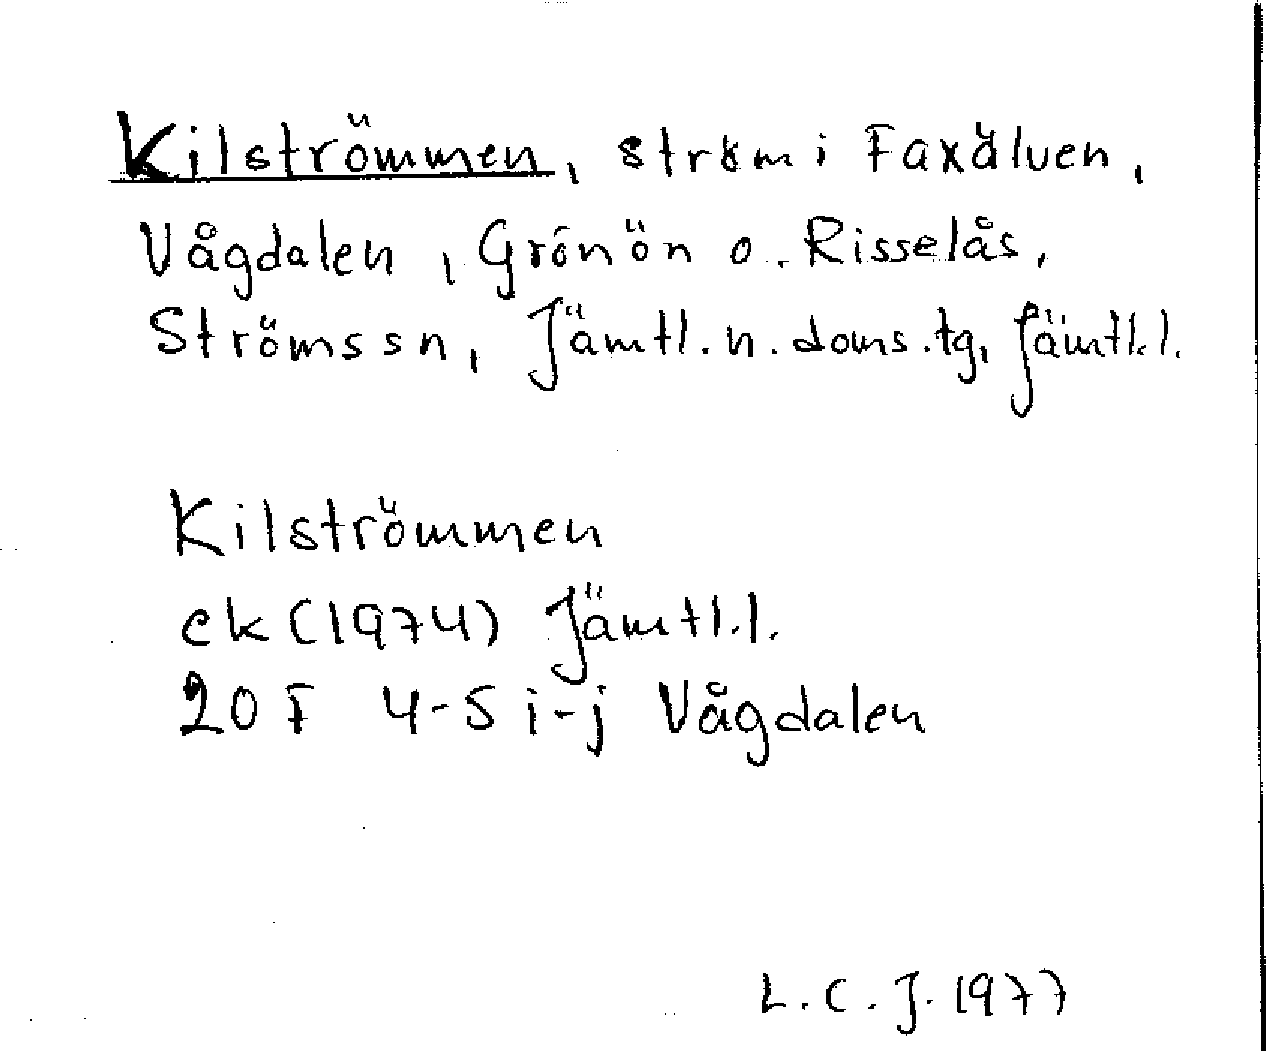 Kilströmmen, ström i Faxälven,
Vågdalen, Grönön o. Risselås,
Strömssn, Jämtl. n. doms.tg, Jämtl.l.
Kilströmmen
ek (1974) Jämtl.l.
20 F 4-5 i-j Vågdalen
L.C.J. 1977